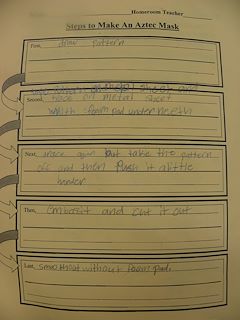 Homeroom Teacher
Steps to Make An Aztec Mask
First,
draw pattern
sheet and
Second,
on metal sheet
with foam pad underneeth
Next,
trace agin but take the pattern
off and then push it a little
harder
Then,
embosit and cut it out
Last,
smoothout without foam pad.